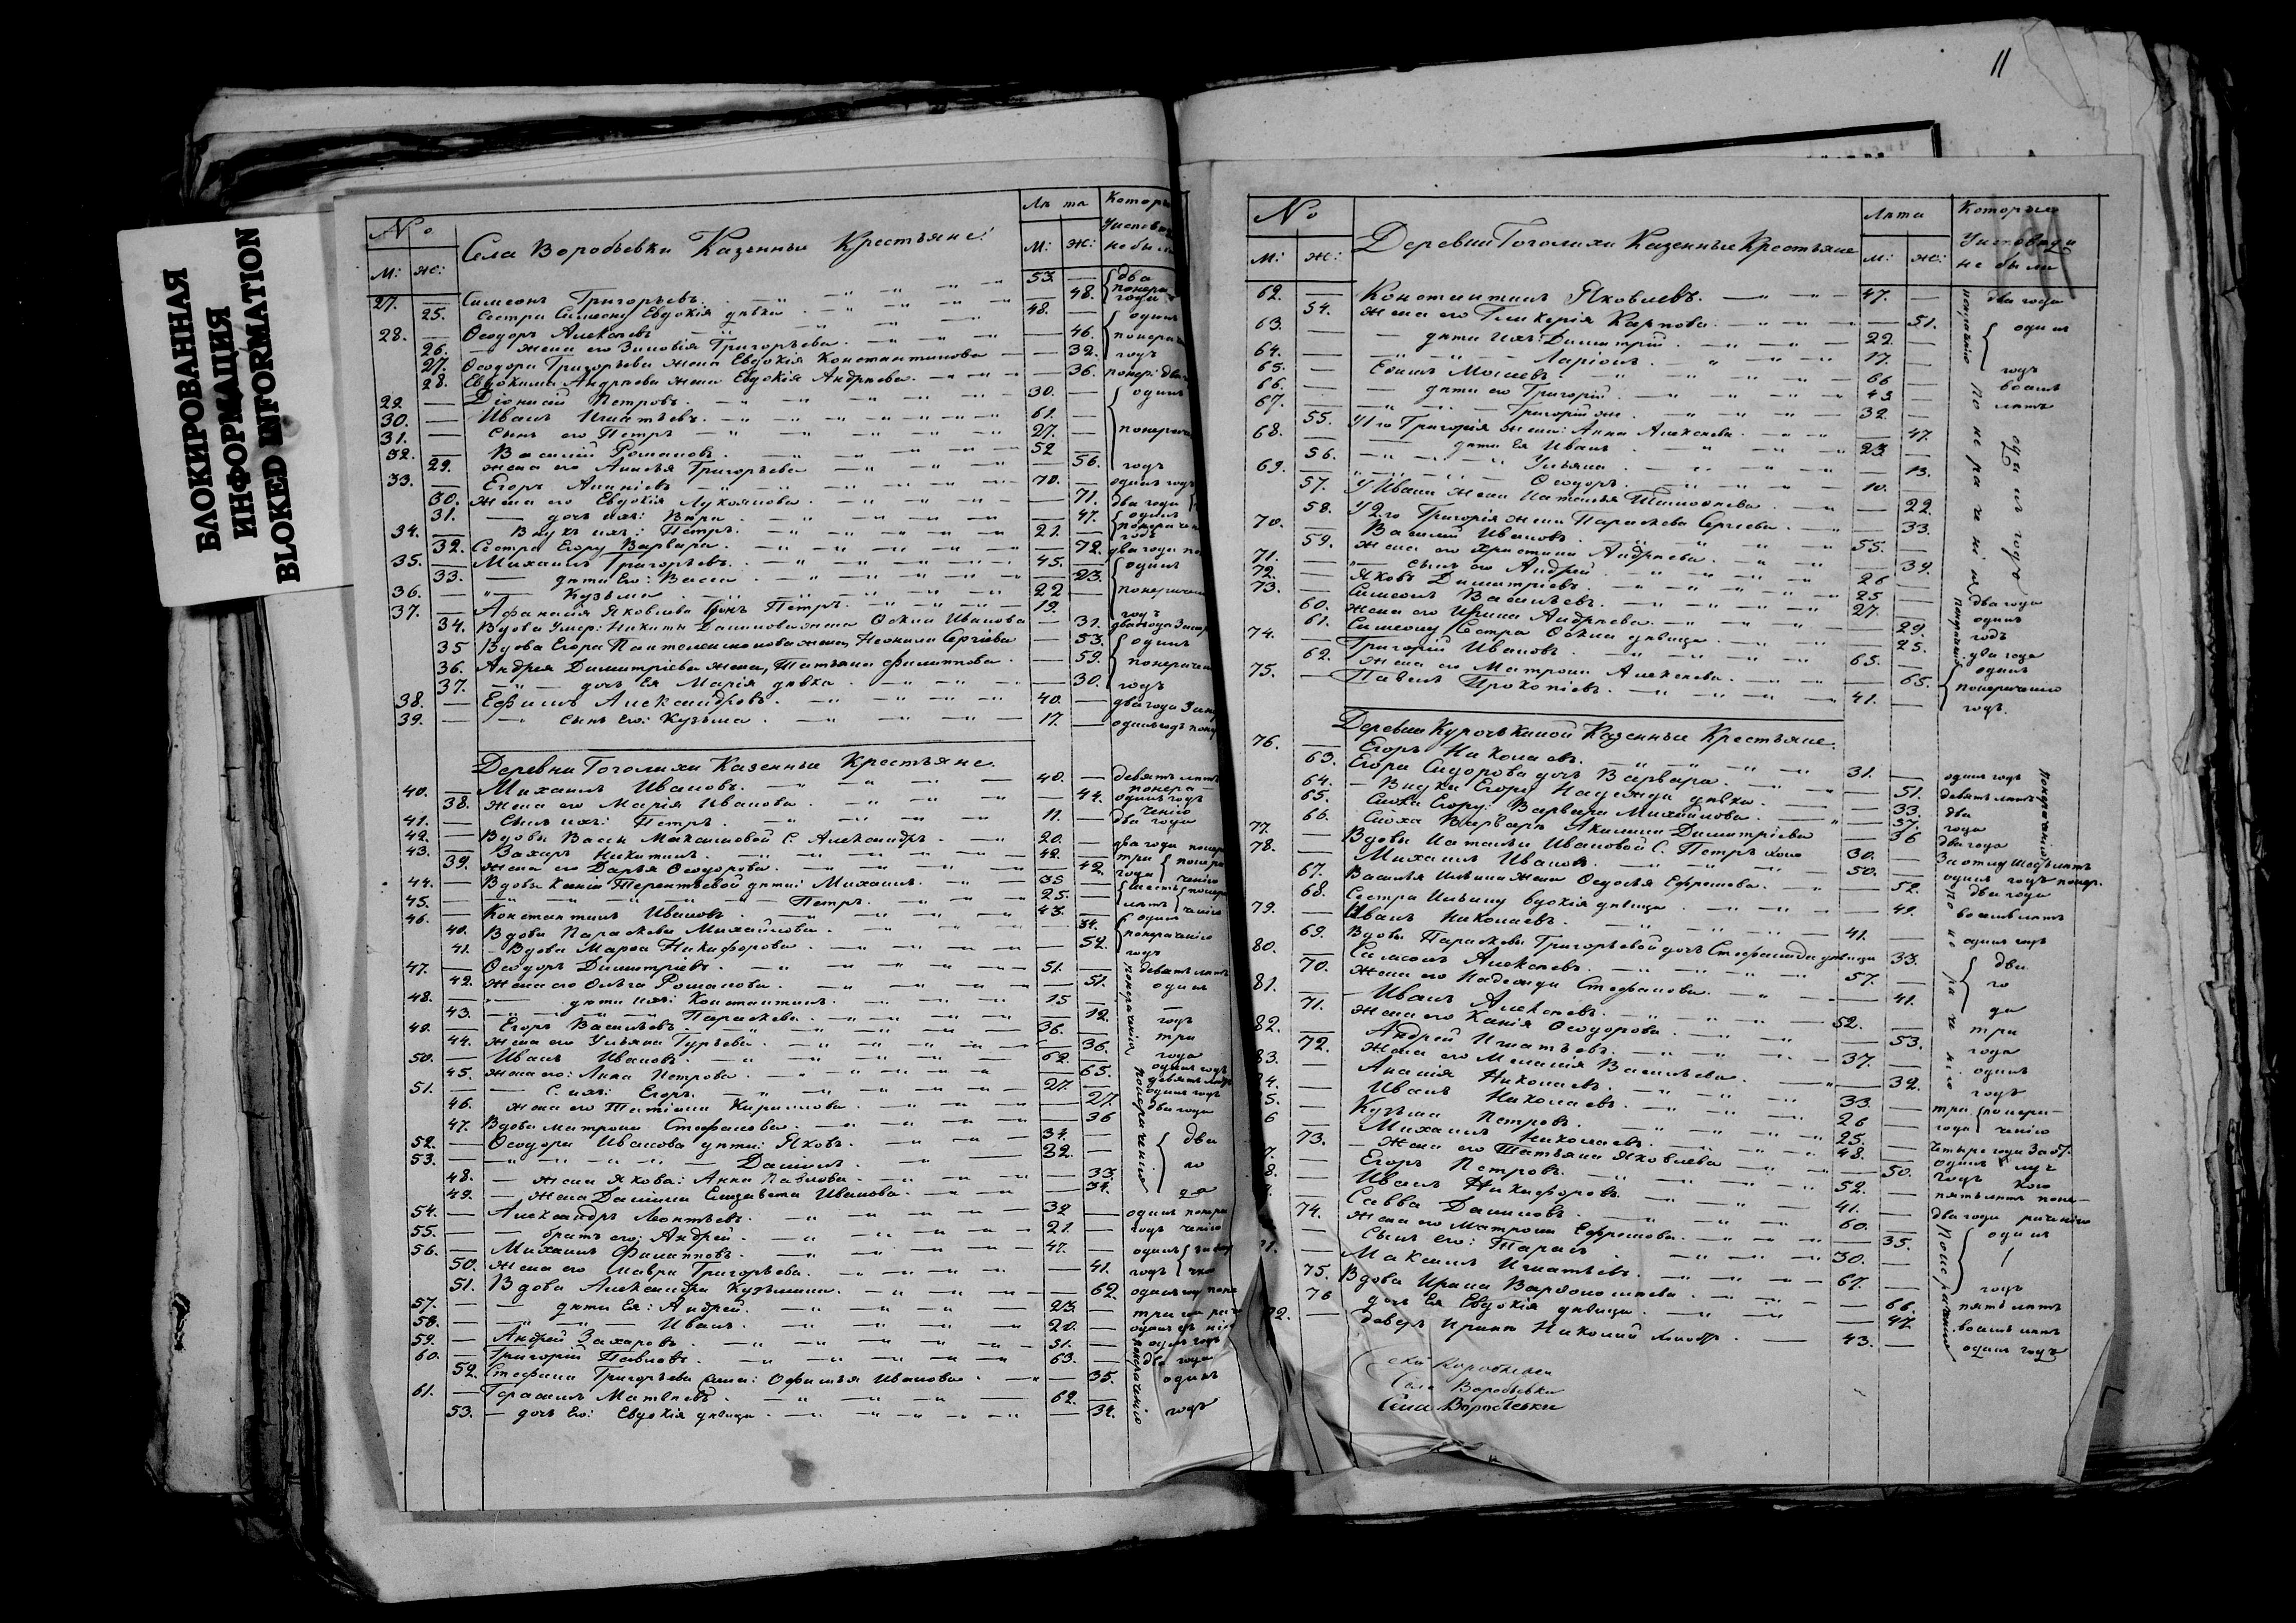 БЛОКИРОВАННАЯ
ИНФОРМАЦИЯ
BLOKED INFORMATION
№
Села Воробьевки Казенные Крестьяне:
Лѣта
М: Ж: М: Ж:
27. — Симеонъ Григорьевъ. 53. — два
25. Сестра Симеону Евдокія дѣвка — 48. года
28. — Ѳеодоръ Алексѣевъ 48. — одинъ
26. — жена его Зиновія Григорьева — 46.
27. Ѳеодора Григорьева жена Евдокія Константинова — 32. годъ
28. Евдокима Андреева жена Евдокія Андреева — 36.
29. — Діонисій Петровъ. 30. — одинъ
30. — Иванъ Игнатьевъ. 61. —
31. — Сынъ его Петръ 27. —
32. — Василій Романовъ. 52 —
29. жена его Анисья Григорьева — 56. годъ
33. — Егоръ Ананіевъ 70. — одинъ годъ
30. Жена его Евдокія Лукоянова — 71. два года
31. — дочь ихъ: Вѣра — 47. одинъ
34. — Внукъ ихъ: Петръ. 21. — годъ
32. Сестра Егору Варвара. — 72. два года
35. — Михаилъ Григорьевъ. 45. — одинъ
33. — дѣти Его: Васса — 23.
36. — Кузьма 22 —
37. — Афанасія Яковлева Сынъ Петръ 19. — годъ
34. Вдова Умер: Никиты Данилова жена Ѳекла Иванова — 31.
35 Вдова Егора Пантелеимонова жена, Неонила Сергіева — 53. одинъ
36. Андрея Димитріева жена, Татьяна Филиппова. — 59.
37. — дочь Ея Марія дѣвка — 30. годъ
38. — Ефимъ Александровъ. 40. — два года
39. — Сынъ Его: Кузьма 17. — одинъ годъ
Деревни Гоголихи Казенные Крестьяне.
40. — Михаилъ Ивановъ. 40. — девять лѣтъ
38. Жена его Марія Иванова — 44. одинъ годъ
41. — Сынъ ихъ: Петръ. 11. — два года
42. — Вдовы Вассы Максимовой С. Александръ 20. — два года
43. — Захаръ Никитинъ. 42. — три
39. Жена его Дарья Ѳеодорова. — 42. года
44. — Вдовы Ксеніи Терентьевой дѣти: Михаилъ. 35 — шесть
45. — Петръ. 25. — лѣтъ
46. — Константинъ Ивановъ 43. — одинъ
40. Вдова Параскева Михайлова. — 34.
41. Вдова Марѳа Никифорова — 52. годъ
47. — Ѳеодоръ Димитріевъ. 51. — девять лѣтъ
42. Жена его Ольга Романова. — 51. одинъ
48. — дѣти ихъ: Константинъ. 15 —
43. Параскева. — 12. годъ
49. — Егоръ Васильевъ. 36. — три
44. Жена его Ульяна Гурьева. — 36. года
50. — Иванъ Ивановъ 62. — одинъ годъ
45. жена его: Анна Петрова — 65. девять лѣтъ
51. — С. ихъ: Егоръ. 27. — одинъ годъ
46. жена его Татіана Кирилова — 27. два года
47. Вдова Матрона Стефанова — 36
52. — Ѳеодора Иванова дѣти: Яковъ. 34. — два
53. — Даніилъ 32. — го
48. — жена Якова: Анна Павлова — 33.
49. — Жена Даніила Елизавета Иванова. — 34. да
54. — Александръ Леонтьевъ. 32 — одинъ
55. — братъ его; Андрей. 21. — годъ
56. — Михаилъ Филипповъ. 47. — одинъ
50. Жена его Мавра Григорьева. — 41. годъ
51. Вдова Александра Кузьмина. — 62.
57. — дѣти Ея: Андрей. 23. —
58. — Иванъ. 20. —
59. — Андрей Захаровъ. 31. — одинъ годъ
60. — Григорій Павловъ. 63. — два года
52. Стефана Григорьева жена: Офимья Иванова — 35. одинъ
61. — Герасимъ Матвѣевъ 62. —
53. — дочь Его: Евдокія дѣвица — 34. годъ
11
№
Деревни Гоголихи Казенные Крестьяне
Лѣта
Которые
У исповѣди
не были
М: Ж: М: Ж:
62. — Константинъ Яковлевъ. 47. — два года
54. Жена его Гликерія Карпова. — 51. одинъ
63. — дѣти ихъ: Димитрій 22. —
64. — Ларіонъ. 17. — годъ
65. — Ефимъ Моисеевъ. 66 — восемь
66. — дѣти его Григорій. 43 — лѣтъ
67. — Григорій же. 32. —
55. У 1го Григорія жена: Анна Алексѣева — 47.
68. — дѣти Ея Иванъ 23. —
56. Ульяна. — 13.
69. — Ѳеодоръ. 10. —
57. У Ивана жена Наталья — 22.
58. У 2го Григорія жена Параскева Сергіева. — 33.
70. — Василій Ивановъ. 55. —
59. Жена его Христина Андреева. — 39.
71. — Сынъ его Андрей 26 —
72. — Яковъ Димитріевъ 25 — два года
73. — Симеонъ Васильевъ 27. — одинъ
60. Жена его Ирина Андреева. — 29. годъ
61. Симеону Сестра Ѳекла дѣвица — 25. два года
74. — Григорій Ивановъ. 65. — одинъ
62. Жена его Матрона Алексѣева. — 65. понераченію
75. — Павелъ Прокопіевъ. 41. — годъ.
Деревни Курочькиной Казенные Крестьяне.
76. — Егоръ Николаевъ. 31. — одинъ годъ
63. Егора Сидорова дочь Варвара. — 51. девять лѣтъ
64. — Внука Егору Надежда дѣвка. — 33. два
65. Сноха Егору: Варвара Михайлова. — 57. года
66. Сноха Варвары Акилина Димитріева — 36 два года
77. — Вдовы Натальи Ивановой С. Петръ 30. —
78. — Михаилъ Ивановъ. 50. — одинъ годъ понер.
67. Василья Ильина жена Ѳедосья Ефремова. — 52. два года
68. — 49. восемь лѣтъ
79. — Иванъ Николаевъ. 41. — одинъ годъ
69. Вдовы Параскевы Григорьевой дочь Стефанида дѣвица — 33. два
80. — Самсонъ Алексѣевъ. 57. — го
70. Жена его Надежда Стефанова. — 41. да
81. — Иванъ Алексѣевъ. 52. — три
71. Жена его Ксенія Ѳеодорова — 53. года
82. — Андрей Игнатьевъ. 37. — одинъ
72. Жена его Меланія Васильева. — 32. годъ
83. — Ананія Николаевъ. 33. — три
— Иванъ Николаевъ. 26 — года
— Кузьма Петровъ. 25. — Четыре года
— Михаилъ Николаевъ. 48. — одинъ
73. — Жена его Татьяна Яковлева — 50. годъ
— Егоръ Петровъ. 52. — пять лѣтъ
— Иванъ Никифоровъ. 41. — два года
— Савва Даниловъ. 60. — одинъ
74. Жена его Матрона Ефремова. — 35.
— Сынъ его: Тарасъ 30. —
— Максимъ Игнатьевъ. 67. — годъ
75. Вдова Ирина Варѳоломеева. — 66. пять лѣтъ
76 дочь Ея Евдокія дѣвица. — 47. восемь лѣтъ
— деверь Иринѣ Николай 43. — одинъ годъ
Села Воробьевки
Села Воробьевки